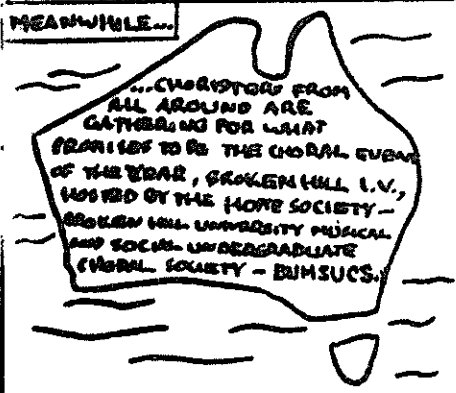 MEANWHILE...
...CHORISTORS FROM
ALL AROUND ARE
GATHERING FOR WHAT
PROMISES TO BE THE CHORAL EVENT
OF THE YEAR, BROKEN HILL I.V.,
HOSTED BY THE HOME SOCIETY -
BROKEN HILL UNIVERSITY MUSICAL
AND SOCIAL UNDERGRADUATE
CHORAL SOCIETY - BUMSUCS.